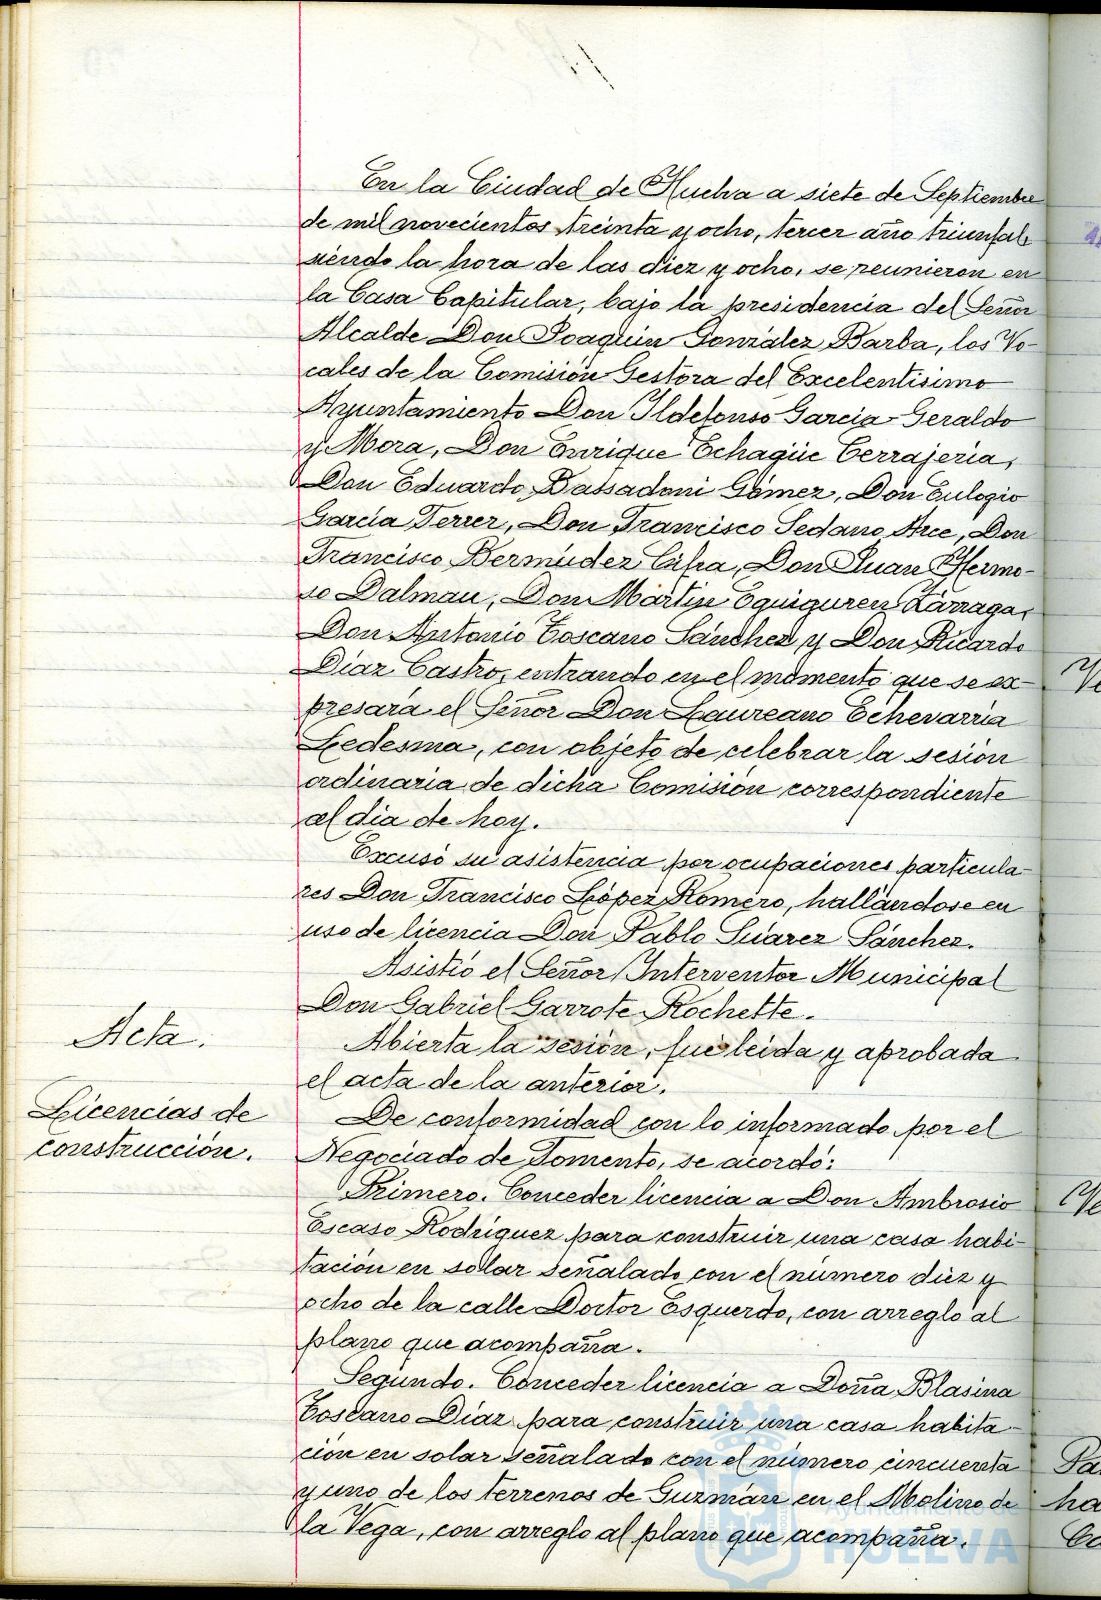 En la Ciudad de Huelva a siete de Septiembre
de mil novecientos treinta y ocho, tercer año triunfal,
siendo la hora de las diez y ocho, se reunieron en
la Casa Capitular, bajo la presidencia del Señor
Alcalde Don Joaquín González Barba, los Vo-
cales de la Comisión Gestora del Excelentísimo
Ayuntamiento Don Ildefonso García-Geraldo
y Mora, Don Enrique Echagüe Cerrajería,
Don Eduardo Bassadoni Gómez, Don Eulogio
García Ferrer, Don Francisco Sedano Arce, Don
Francisco Bermúdez Cifra, Don Juan Hermo-
so Dalmau, Don Martín Eguiguren Zárraga,
Don Antonio Toscano Sánchez y Don Ricardo
Díaz Castro, entrando en el momento que se ex-
presará el Señor Don Laureano Echevarría
Ledesma, con objeto de celebrar la sesión
ordinaria de dicha Comisión correspondiente
al día de hoy.
Excusó su asistencia por ocupaciones particula-
res Don Francisco López Romero, hallándose en
uso de licencia Don Pablo Súarez Sánchez.
Asistió el Señor Interventor Municipal
Don Gabriel Garrote Rochette.
Acta.
Abierta la sesión, fué leída y aprobada
el acta de la anterior.
Licencias de
construcción.
De conformidad con lo informado por el
Negociado de Fomento, se acordó:
Primero. Conceder licencia a Don Ambrosio
Escaso Rodríguez para construir una casa habi-
tación en solar señalado con el número diez y
ocho de la calle Doctor Esquerdo, con arreglo al
plano que acompaña.
Segundo. Conceder licencia a Doña Blasina
Toscano Díaz para construir una casa habita-
ción en solar señalado con el número cincuenta
y uno de los terrenos de Guzmán en el Molino de
la Vega, con arreglo al plano que acompaña.
Ayuntamiento de
HUELVA